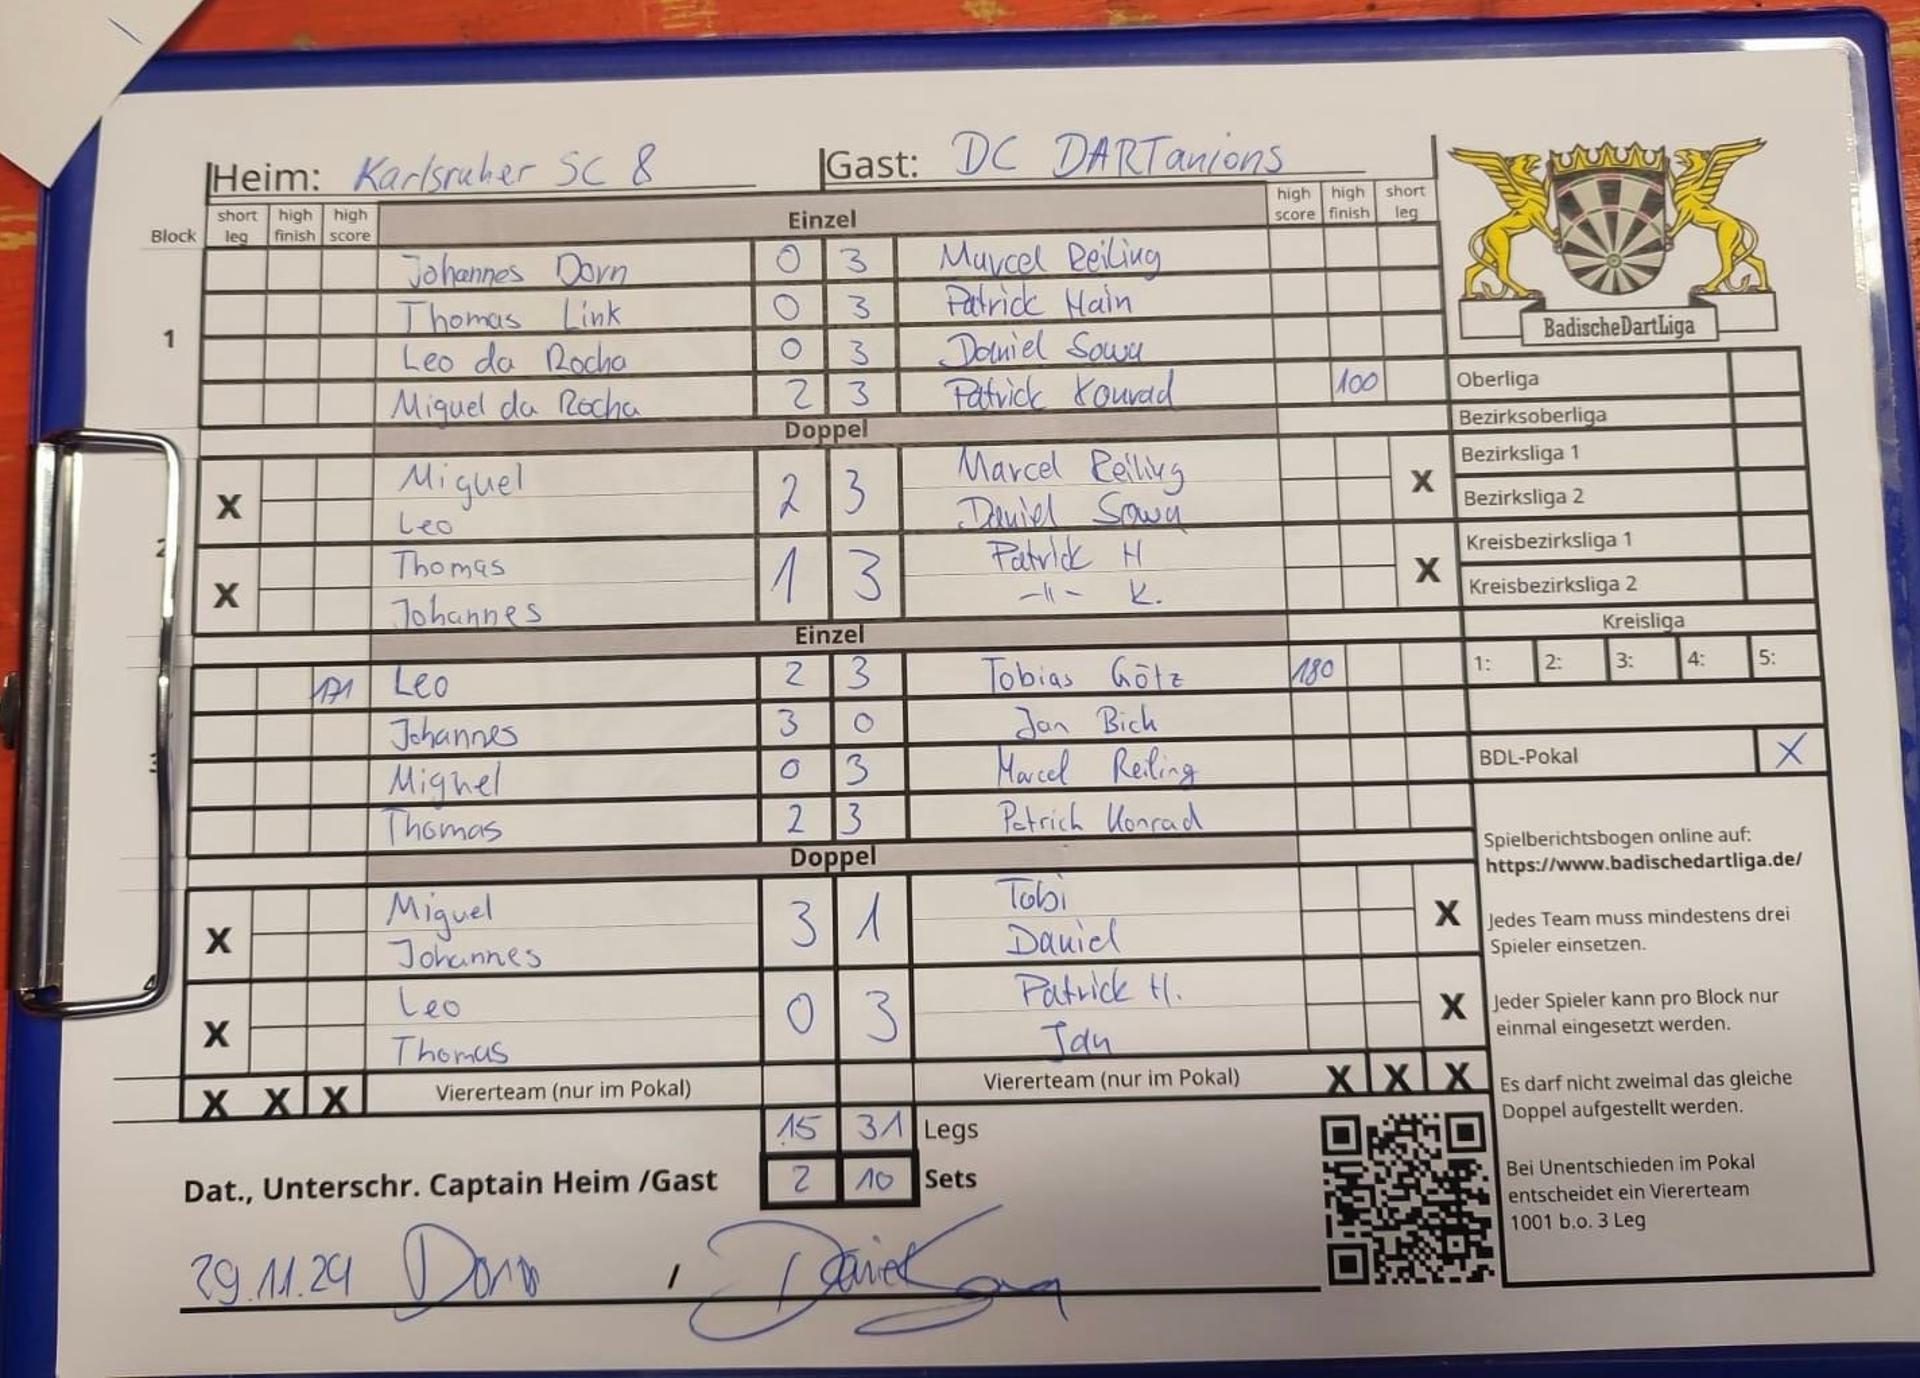 Heim: Karlsruher SC 8 Gast: DC DARTanions
Block short leg high finish high score Einzel high score high finish short leg
1
Johannes Dorn 0 3 Marcel Reiling
Thomas Link 0 3 Patrick Hain
Leo da Rocha 0 3 Daniel Sowa
Miguel da Rocha 2 3 Patrick Konrad 100
Doppel
2
X Miguel 2 3 Marcel Reiling X
Leo Daniel Sowa
X Thomas 1 3 Patrick H X
Johannes -"- K.
Einzel
3
171 Leo 2 3 Tobias Götz 180
Johannes 3 0 Jan Bich
Miguel 0 3 Marcel Reiling
Thomas 2 3 Patrick Konrad
Doppel
4
X Miguel 3 1 Tobi X
Johannes Daniel
X Leo 0 3 Patrick H. X
Thomas Jan
X X X Viererteam (nur im Pokal) Viererteam (nur im Pokal) X X X
15 31 Legs
2 10 Sets
Dat., Unterschr. Captain Heim /Gast
29.11.24 Dorn / Daniel Sowa
BadischeDartLiga
Oberliga
Bezirksoberliga
Bezirksliga 1
Bezirksliga 2
Kreisbezirksliga 1
Kreisbezirksliga 2
Kreisliga
1: 2: 3: 4: 5:
BDL-Pokal X
Spielberichtsbogen online auf:
https://www.badischedartliga.de/
Jedes Team muss mindestens drei
Spieler einsetzen.
Jeder Spieler kann pro Block nur
einmal eingesetzt werden.
Es darf nicht zweimal das gleiche
Doppel aufgestellt werden.
Bei Unentschieden im Pokal
entscheidet ein Viererteam
1001 b.o. 3 Leg